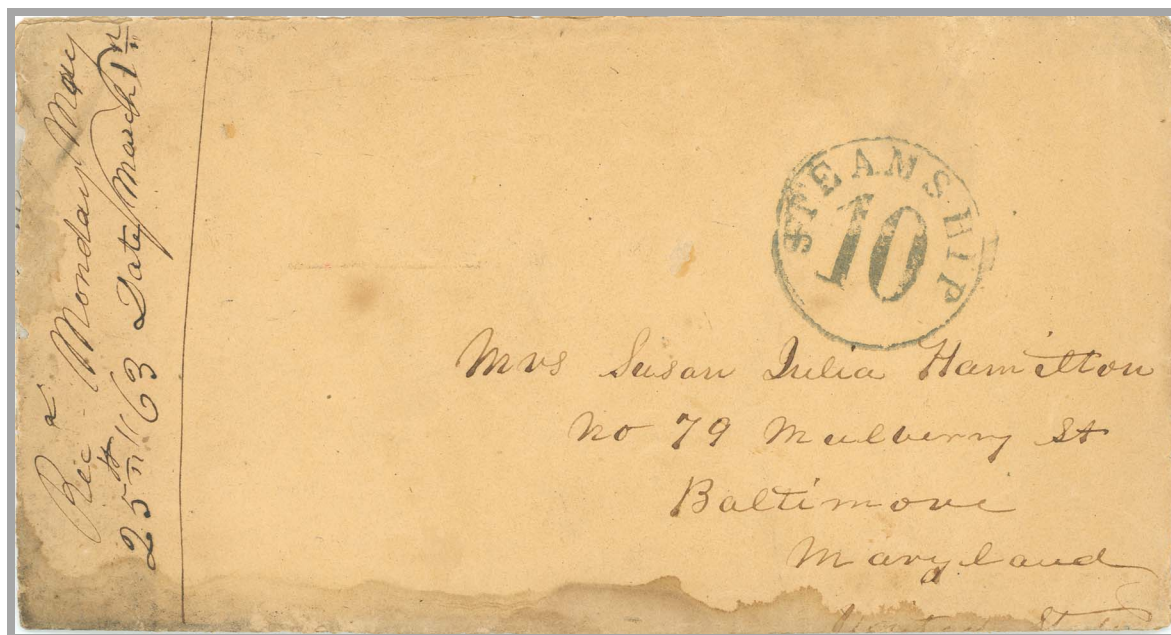 Recd Monday May
25th "63 Date March 1st
STEAMSHIP
10
Mrs Susan Julia Hamilton
No 79 Mulberry St
Baltimore
Maryland